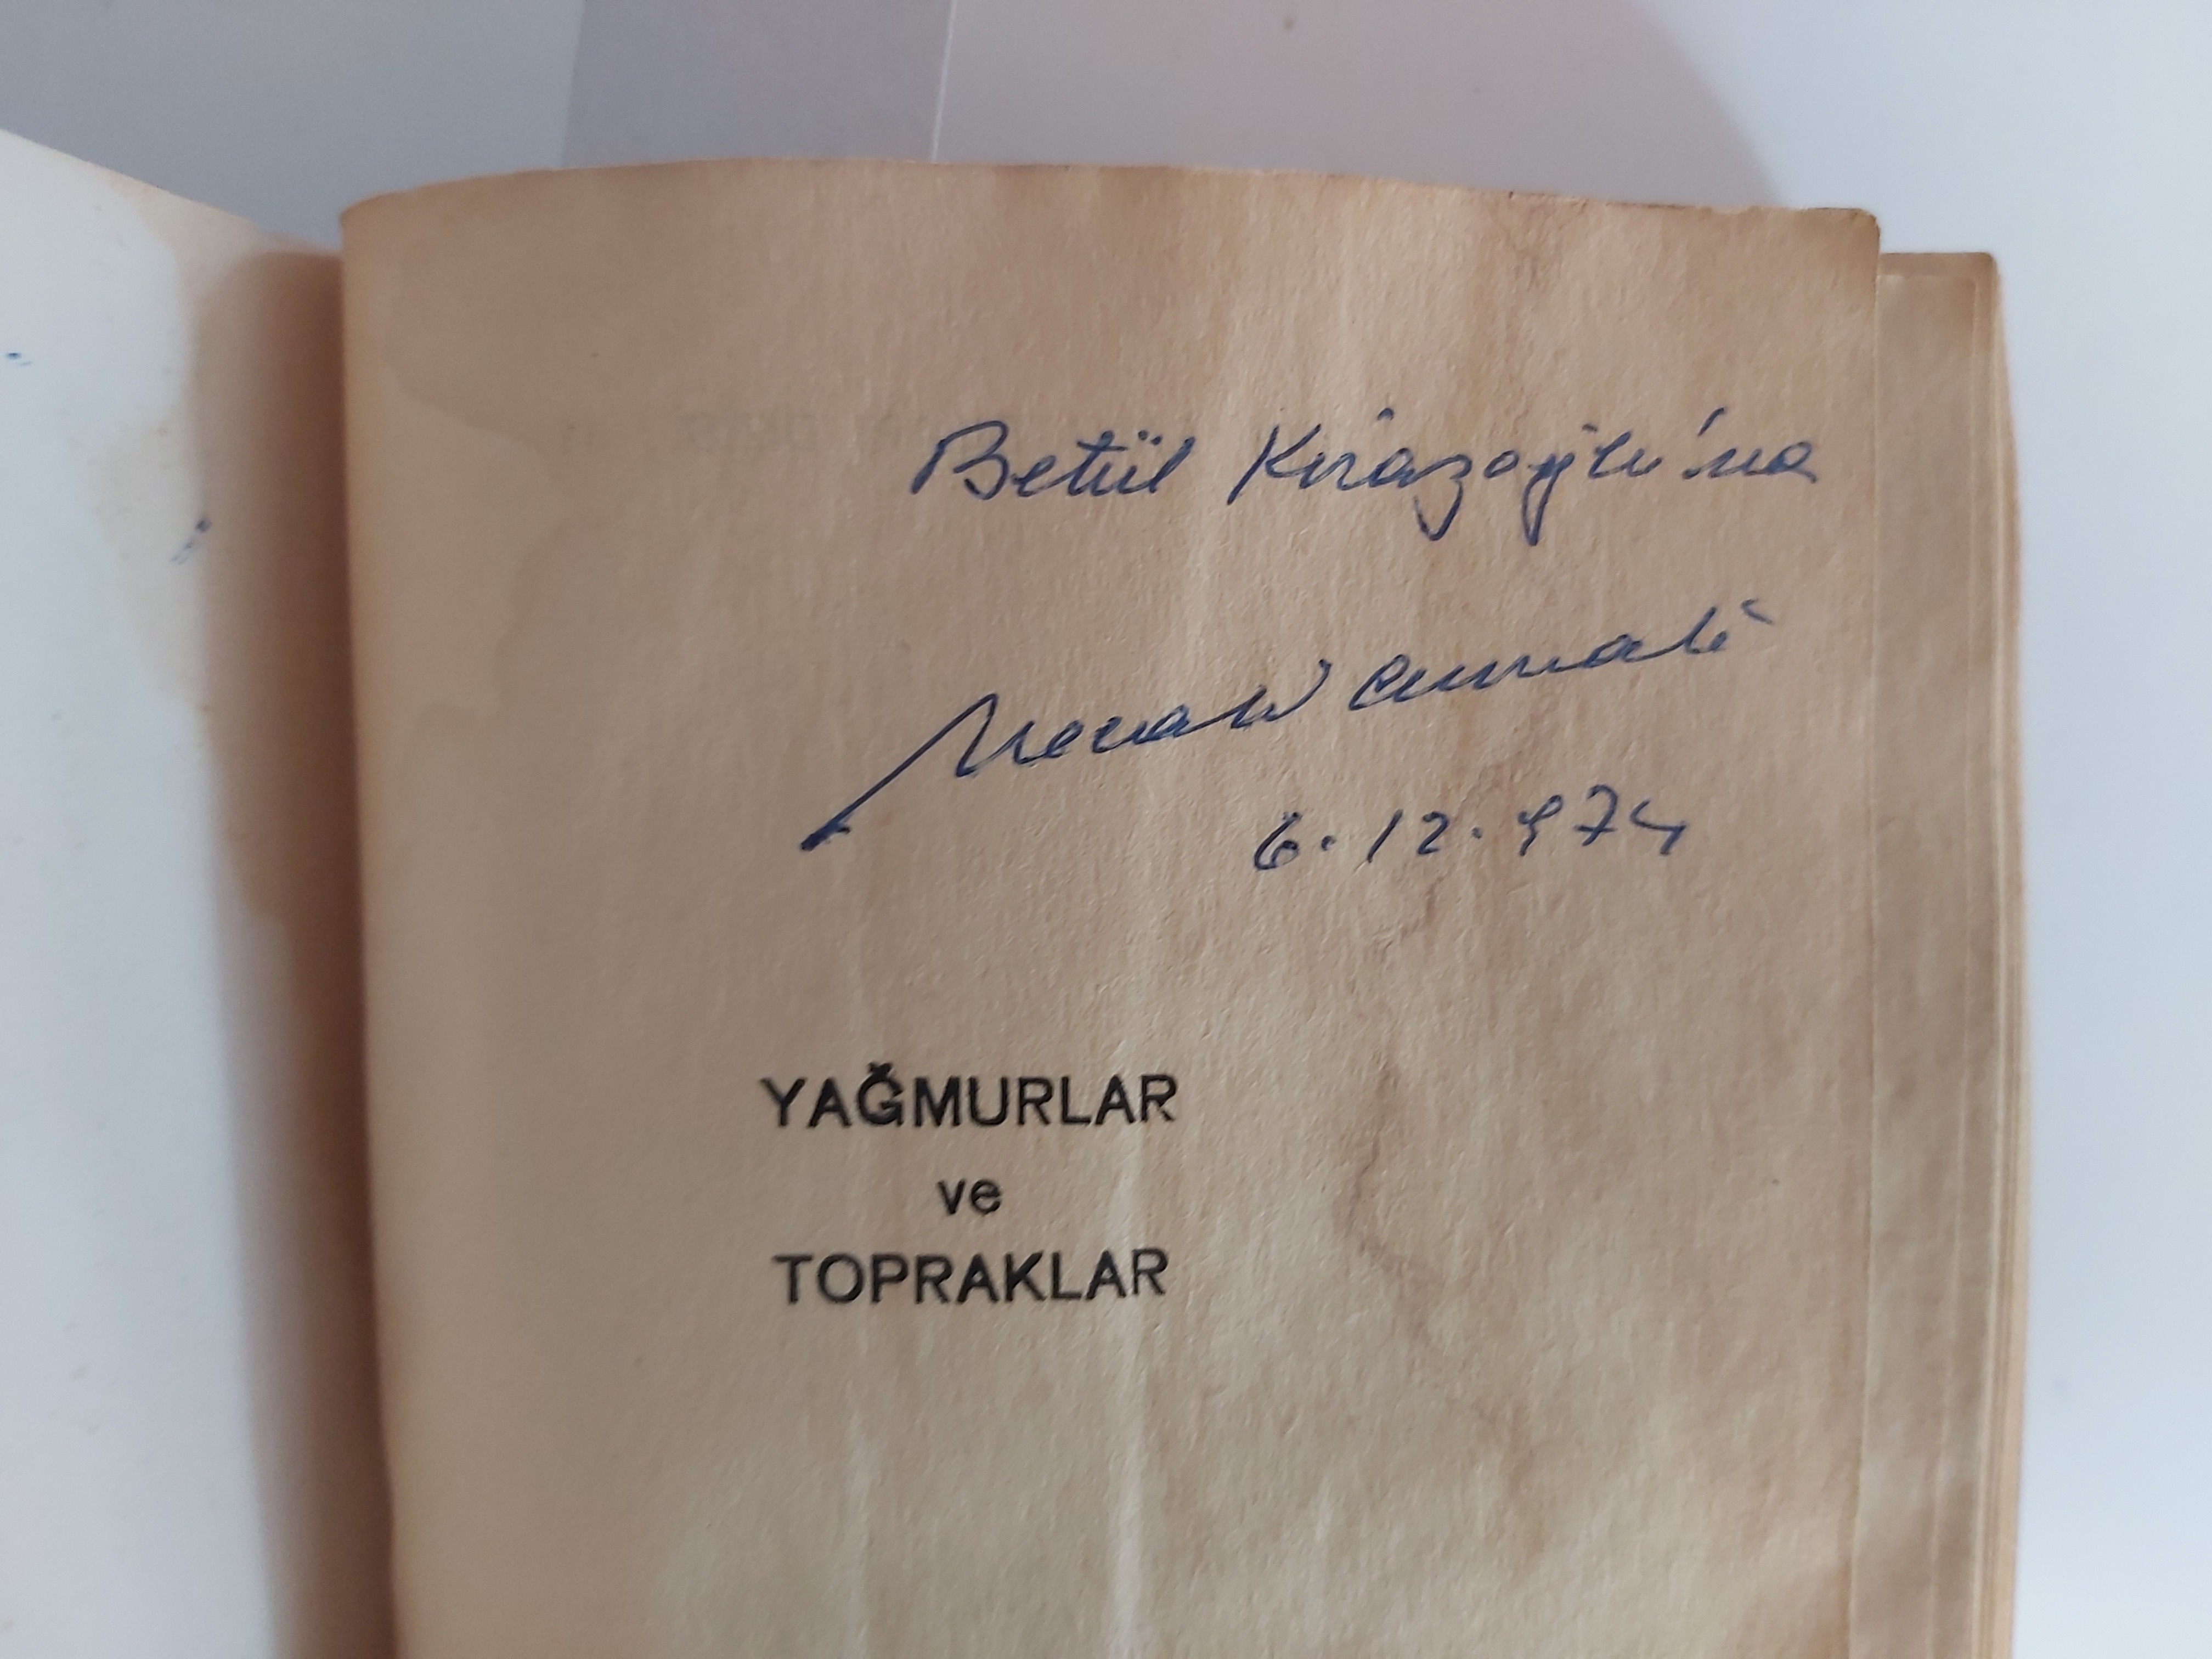 Betül Kirazoğlu'na
Necati Cumalı
6.12.974
YAĞMURLAR
ve
TOPRAKLAR